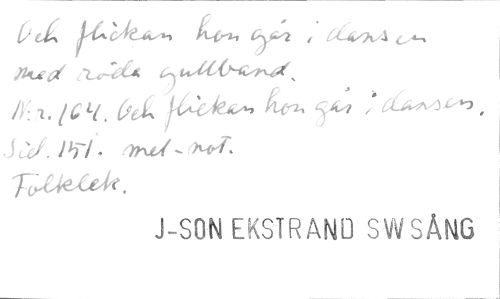 Och flickan hon går i dansen
med röda gullband.
N:r. 164. Och flickan hon går i dansen.
Sid. 151. mel-not.
Folklek.
J-SON EKSTRAND SW SÅNG